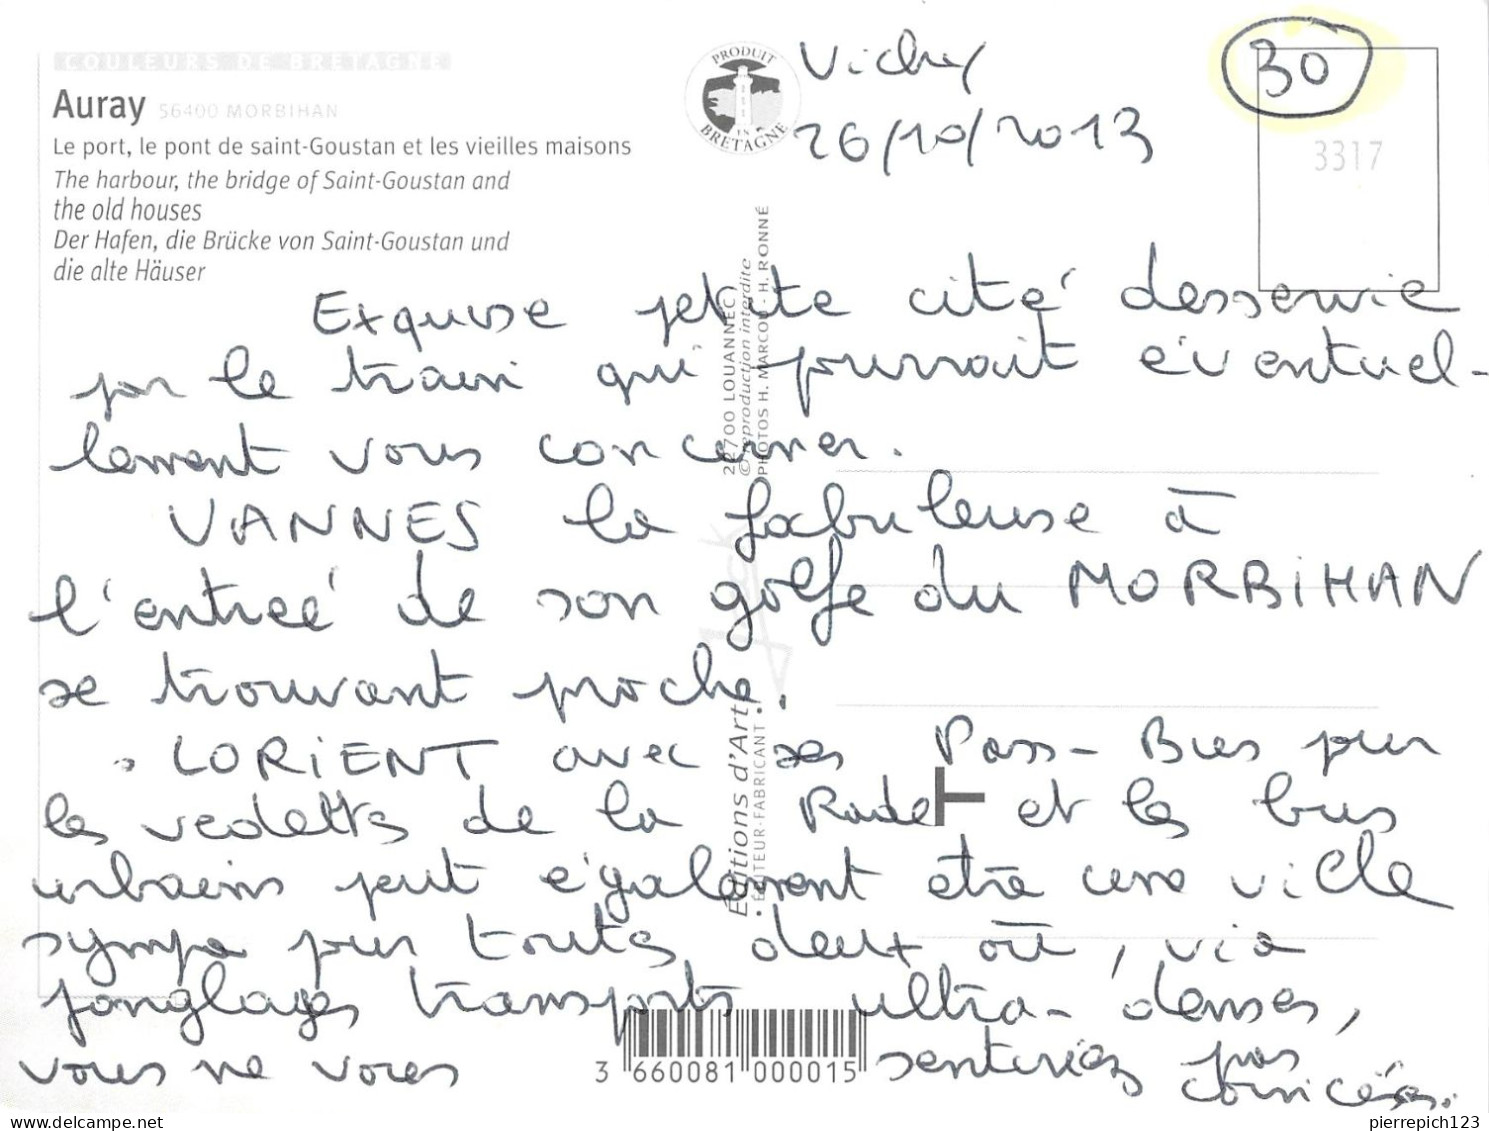 COULEURS DE BRETAGNE
Auray 56400 MORBIHAN
Le port, le pont de saint-Goustan et les vieilles maisons
The harbour, the bridge of Saint-Goustan and
the old houses
Der Hafen, die Brücke von Saint-Goustan und
die alte Häuser
PRODUIT
EN
BRETAGNE
Vichy
26/10/2013
30
3317
Exquise petite cité desservie
par le train qui pourrait éventuel-
lement vous concerner.
VANNES la fabuleuse à
l'entrée de son golfe du MORBIHAN
se trouvant proche.
. LORIENT avec ses Pass-Bus pur
les vedettes de la Rade et les bus
urbains peut également être une ville
sympa pur toutes deux où, via
jonglages transports ultra-denses,
vous ne vous sentiriez pas
coincées.
Editions d'Art Jack
• ÉDITEUR-FABRICANT •
22700 LOUANNEC
© reproduction interdite
PHOTOS H. MARCOU - H. RONNÉ
T
3 660081 000015
pierrepich123